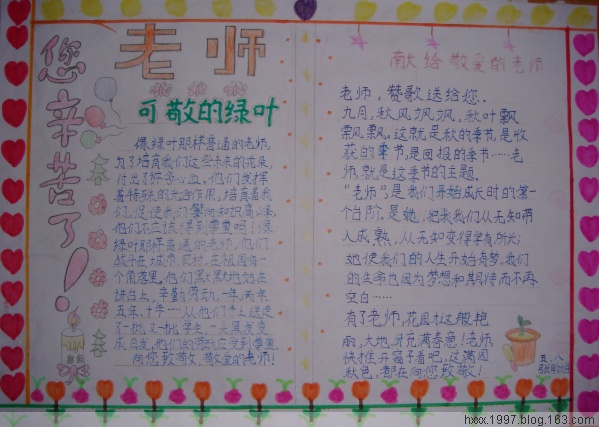 老师
您辛苦了!
可敬的绿叶
像绿叶那样普通的老师,
为了培育我们这些未来的花朵,
付出了许多心血。他们发挥
着特殊的光合作用,培育着我
们,促使我们攀向知识高峰。
他们不应该得到尊重吗?像
绿叶那样普通的老师,他们
战斗在城市、农村,在祖国每一
个角落里。他们默默地站在
讲台上,辛勤劳动,一年,两年,
五年,十年……从他们手上送走
了一批又一批学生,一头黑发变
成白发,他们的劳动应受到尊重
向您致敬,敬爱的老师!
献给敬爱的老师
老师,赞歌送给您.
九月,秋风飒飒,秋叶飘
飘。这就是秋的季节,是收
获的季节,是回报的季节……老
师,就是这季节的主题。
"老师",是我们开始成长时的第一
个台阶。是她,把我们从无知带
入成熟,从无知变得学有所长;
她使我们的人生开始有梦,我们
的生命也因为梦想和期待而不再
空白……
有了老师,花园才这般艳
丽,大地才充满春意!老师
快推开窗子看吧,这满园
秋色,都在向您致敬!
五.八
hxxx.1997.blog.163.com